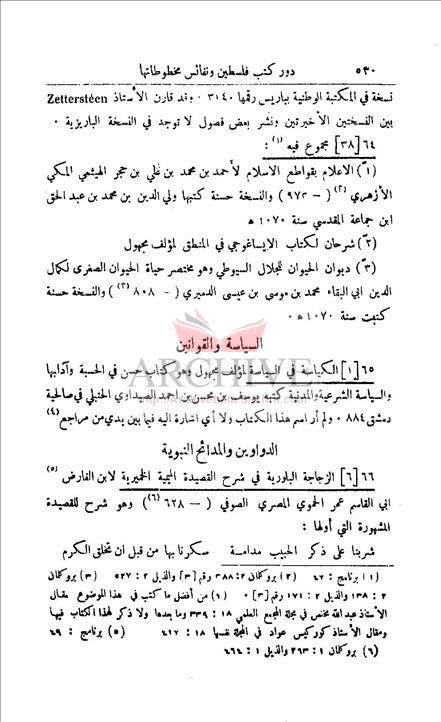 ٥٣٠ دور كتب فلسطين ونفائس مخطوطاتها
نسخة في المكتبة الوطنية بباريس رقمها ٣١٤٠ . وقد قارن الأستاذ Zettersteen
بين النسختين الأخيرتين ونشر بعض فصول لا توجد في النسخة الباريزية .
٦٤ [٣٨] مجموع فيه (١) :
(١ً) الاعلام بقواطع الاسلام لأحمد بن محمد بن علي بن حجر الهيثمي المكي
الأزهري (٢) ( – ٩٧٣ ) والنسخة حسنة كتبها ولي الدين بن محمد بن عبد الحق
ابن جماعة المقدسي سنة ١٠٧٠ ه
(٢ً) شرحان لكتاب الايساغوجي في المنطق لمؤلف مجهول
(٣ً) ديوان الحيوان للجلال السيوطي وهو مختصر حياة الحيوان الصغرى لكمال
الدين ابي البقاء محمد بن موسى بن عيسى الدميري ( – ٨٠٨ (٣) ) والنسخة حسنة
كتبت سنة ١٠٧٠ ه .
السياسة والقوانين
٦٥ [١] الكياسة في السياسة لمؤلف مجهول وهو كتاب حسن في الحسبة وآدابها
والسياسة الشرعية والمدنية كتبه يوسف بن محسن بن احمد الصيداوي الحنبلي في صالحية
دمشق ٨٨٤ . ولم أر اسم هذا الكتاب ولا أي اشارة اليه فيما بين يدي من مراجع (٤)
ARCHIVE
الدواوين والمدائح النبوية
٦٦ [٦] الزجاجة البلورية في شرح القصيدة الميمية الخمرية لابن الفارض (٥)
ابي القاسم عمر الحموي المصري الصوفي ( – ٦٢٨ (٦) ) وهو شرح للقصيدة
المشهورة التي أولها :
شربنا على ذكر الحبيب مدامة سكرنا بها من قبل ان تخلق الكرم
(١) برنامج : ٤٧ (٢) بروكلمان ٢ : ٣٨٨ رقم [٣] والذيل ٢ : ٥٢٧ (٣) بروكلمان
٢ : ١٣٨ والذيل ٢ : ١٧١ رقم [٣] . (٤) من أفضل ما كتب في هذا الموضوع مقال
الأستاذ عبد الله مخلص في مجلة المجمع العلمي ١٨ : ٣٣٩ وما بعدها ولا ذكر لهذا الكتاب فيها
ومقال الأستاذ كوركيس عواد في المجلة نفسها ١٨ : ٤١٧ (٥) برنامج : ٤٩
(٦) بروكلمان ١ : ٢٦٣ والذيل ١ : ٤٦٤